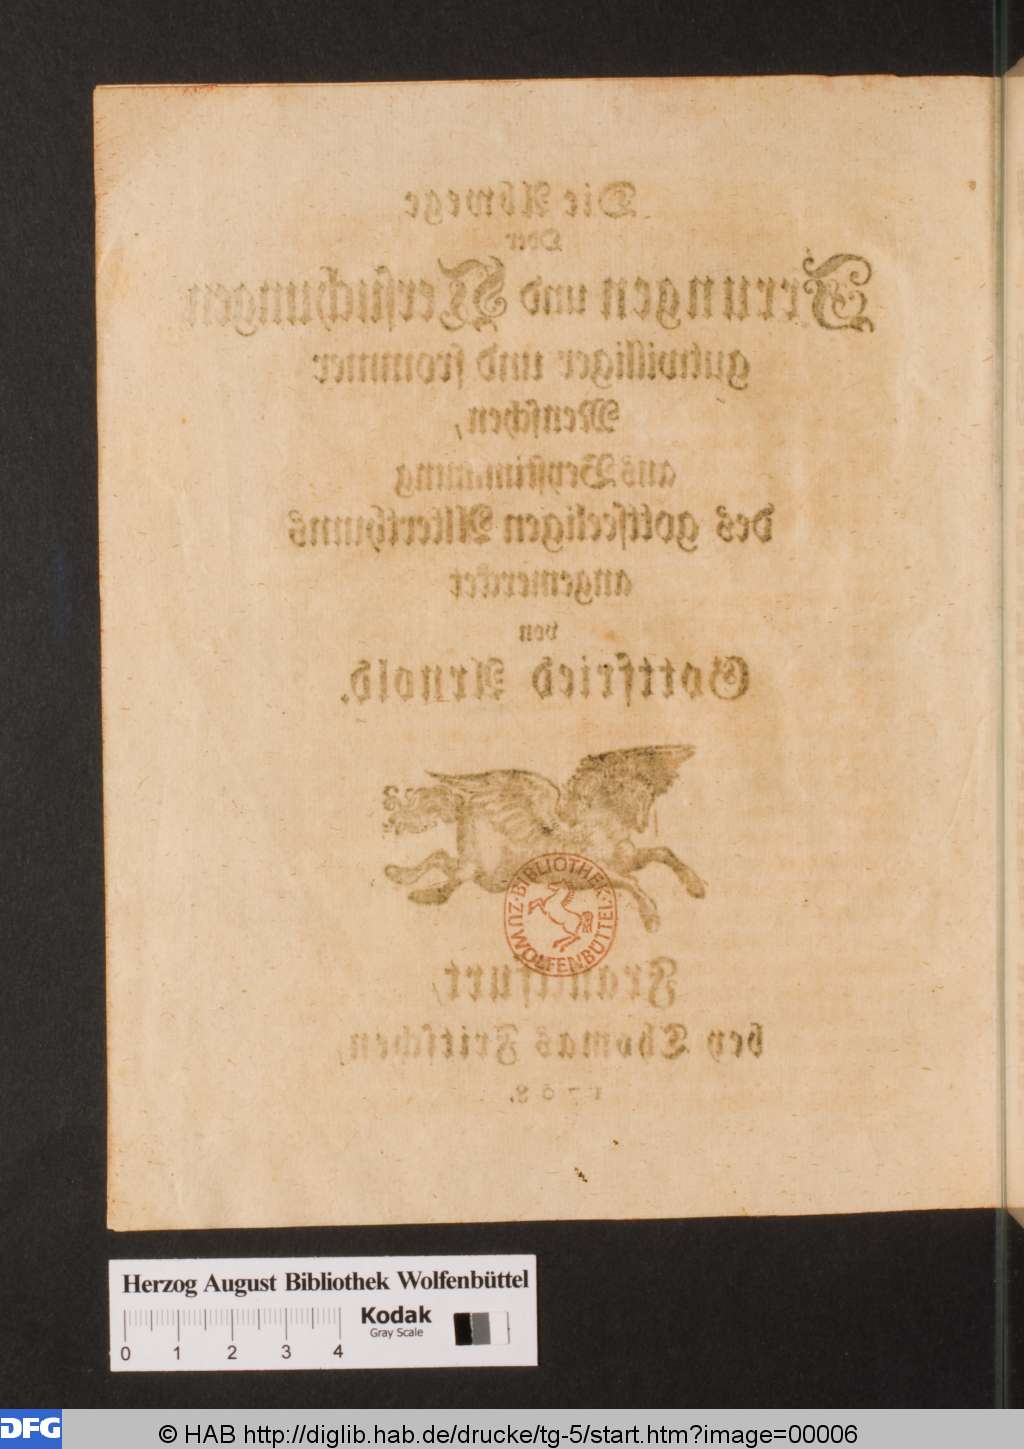 Die Abwege
Oder
Irrungen und Versuchungen
gutwilliger und frommer
Menschen,
aus Beystimmung
des gottseeligen Alterthums
angemercket
von
Gottfried Arnold.
BIBLIOTHEK
ZU WOLFENBÜTTEL
Franckfurt,
bey Thomas Fritschen,
1708.
Herzog August Bibliothek Wolfenbüttel
Kodak
Gray Scale
0 1 2 3 4
DFG
© HAB http://diglib.hab.de/drucke/tg-5/start.htm?image=00006